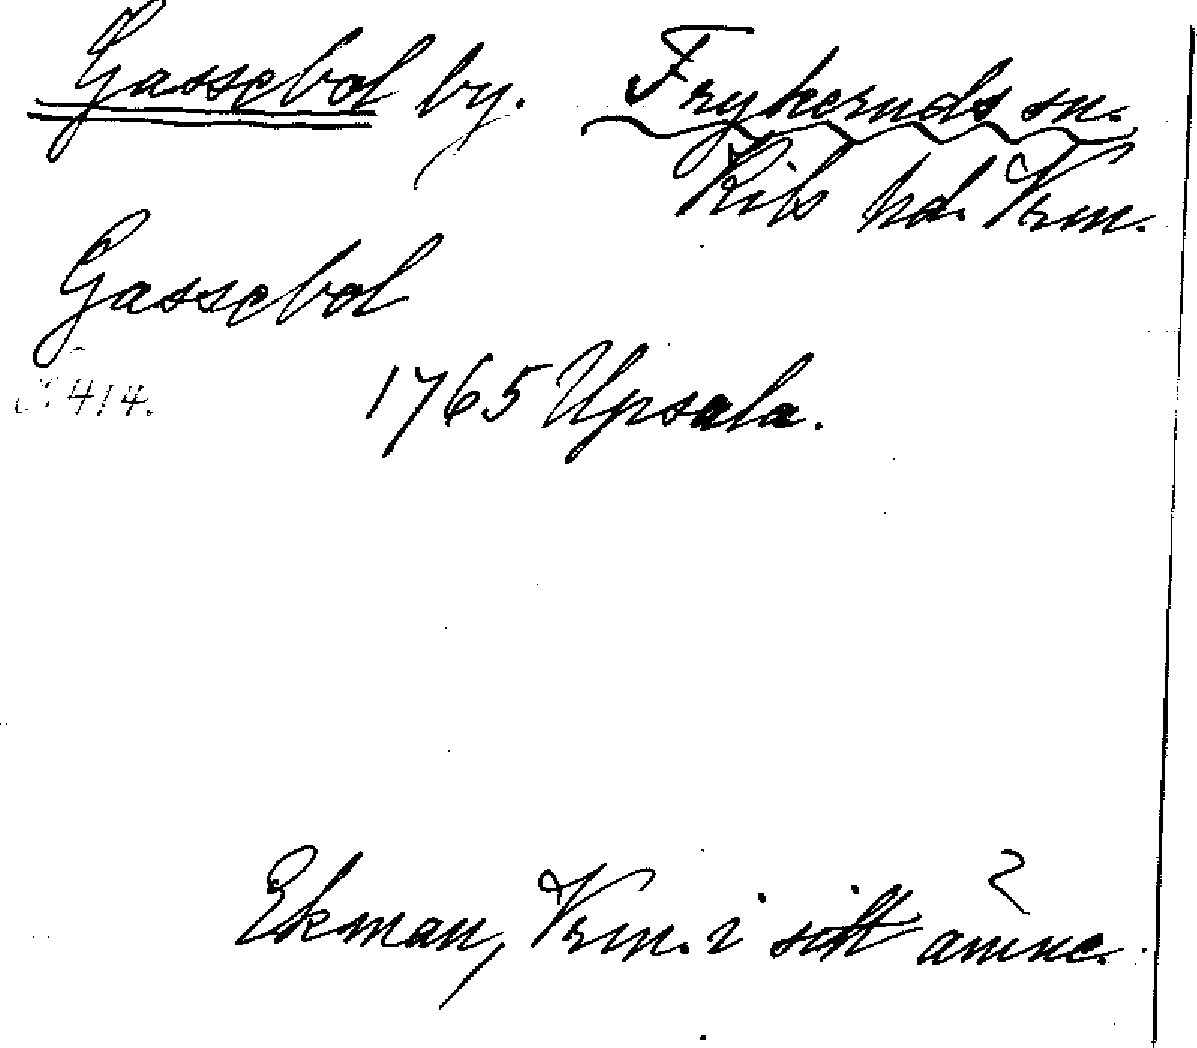 Gassebol by. Frykeruds sn.
Kils hd. Vrm.
Gassebol
414. 1765 Upsala.
Ekman, Vrm. i sitt ämne.